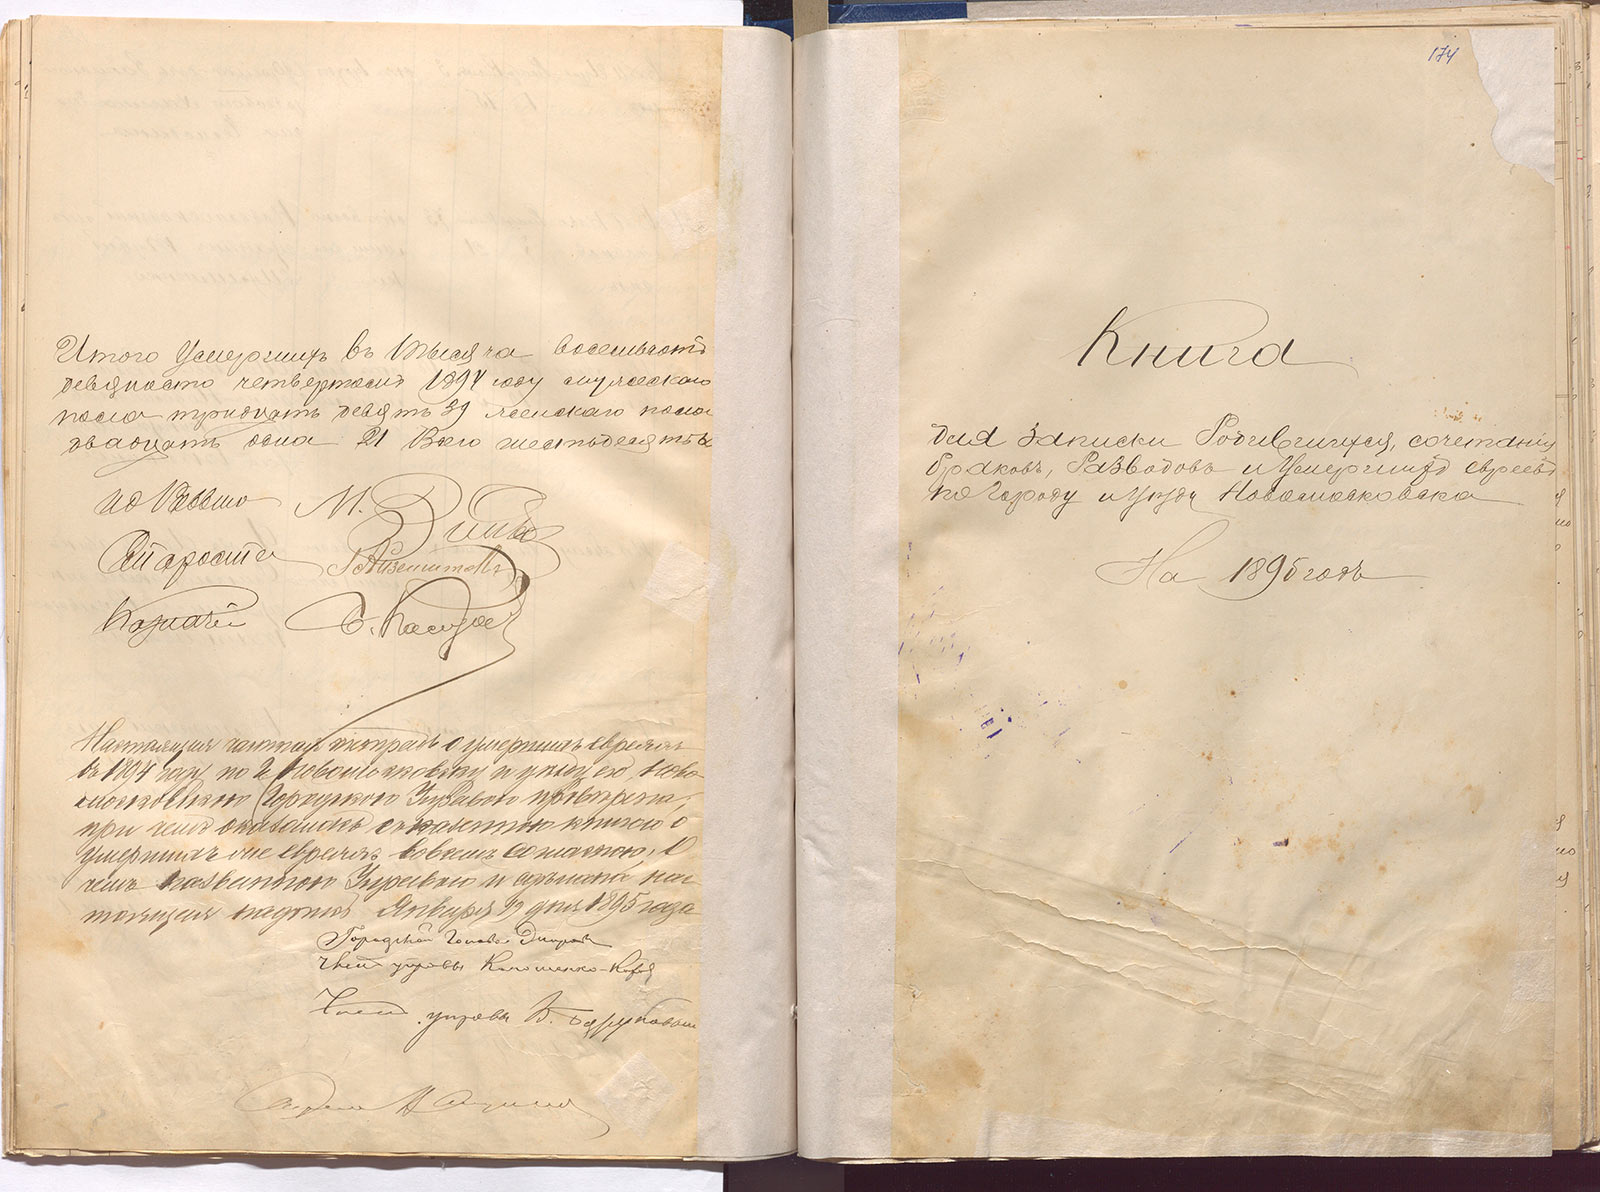 Итого Умершихъ въ Тысяча восемьсотъ
девяносто четвертомъ 1894 году мужескаго
пола тридцать девять 39 женскаго пола
двадцать одна 21 Всего шестьдесятъ
М.
Староста
Казначей
Настоящая тетрадь о умершихъ евреяхъ
въ 1894 году по г. Новомосковску и уезду его Ново
московскою Городскою Управою проверена,
при чемъ оказалась съ книгою о
умершихъ евреяхъ во всемъ согласною, о
чемъ названною Управою и сделана нас
тоящая надпись Января дня 1895 года
Городской Голова
Членъ управы
Членъ управы В.
174
Книга
для Записки Родившихся, сочетанія
браковъ, Разводовъ и Умершихъ евреевъ
по Городу и Уезду Новомосковска
На 1895 годъ